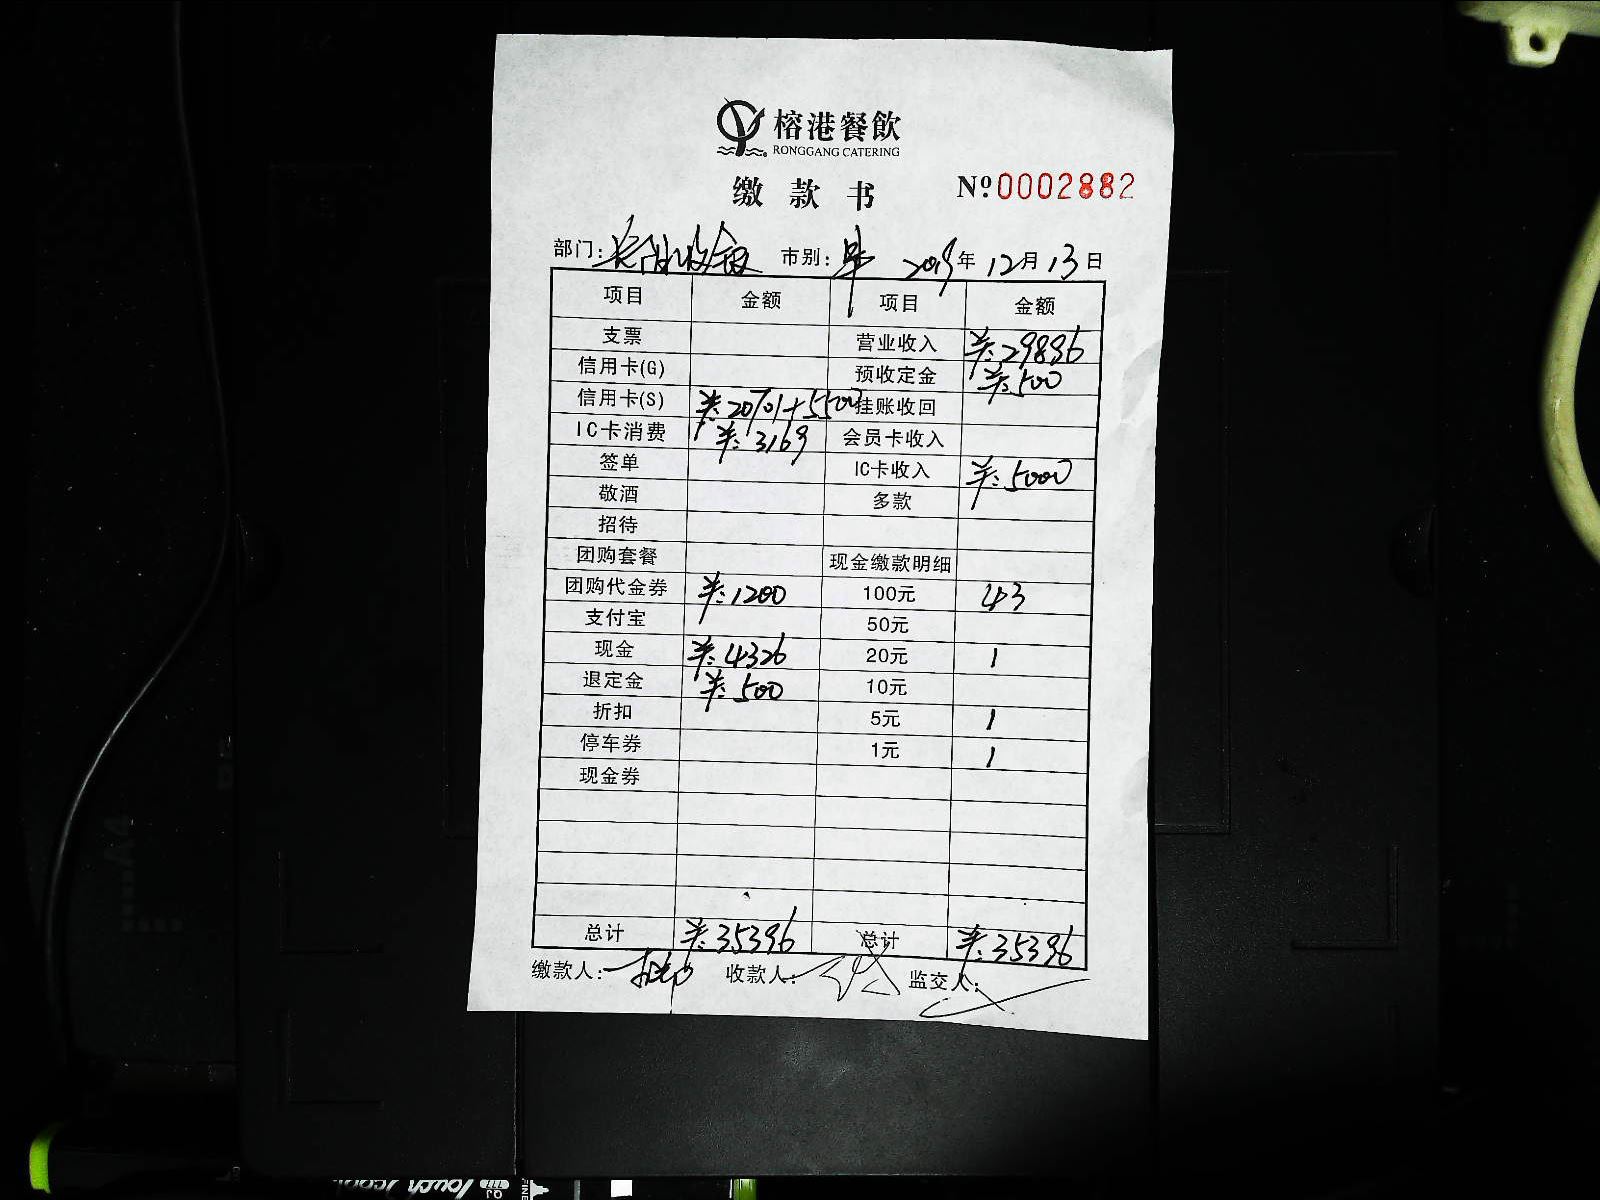 榕港餐飲
RONGGANG CATERING
缴款书 Nº0002882
部门: 收银 市别: 2019年12月13日
项目 金额 项目 金额
支票 营业收入 ¥:29896
信用卡(G) 预收定金 ¥:500
信用卡(S) ¥:20701+5500 挂账收回
IC卡消费 ¥:3169 会员卡收入
签单 IC卡收入 ¥:5000
敬酒 多款
招待
团购套餐 现金缴款明细
团购代金券 ¥:1200 100元 43
支付宝 50元
现金 ¥:4326 20元 1
退定金 ¥:500 10元
折扣 5元 1
停车券 1元 1
现金券
总计 ¥:35396 总计 ¥:35396
缴款人: 收款人: 监交人: